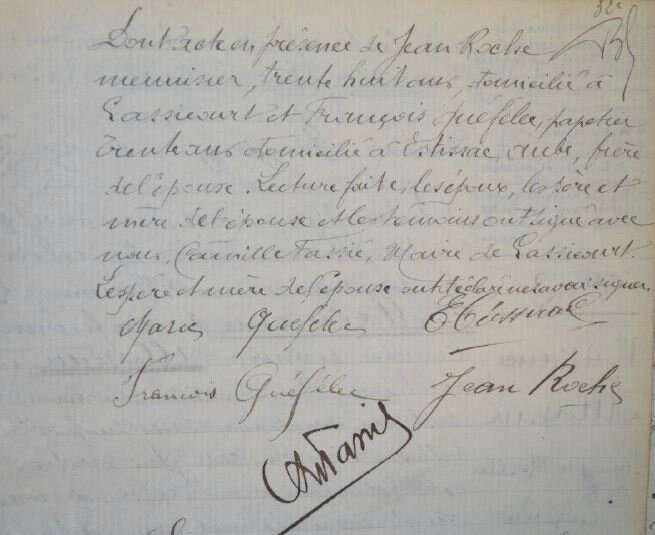 Dont acte en présence de Jean Roche
menuisier, trente huit ans, domicilié à
Lassicourt et François Quéfélec, papetier
trente ans domicilié à Estissac, aube, frère
de l'épouse. Lecture faite, les époux, les père et
mère de l'épouse et les témoins ont signé avec
nous, Camille Tassié, Maire de Lassicourt.
Les père et mère de l'épouse ont déclaré ne savoir signer.
Marie Quéfélec
François Quéfélec Jean Roche